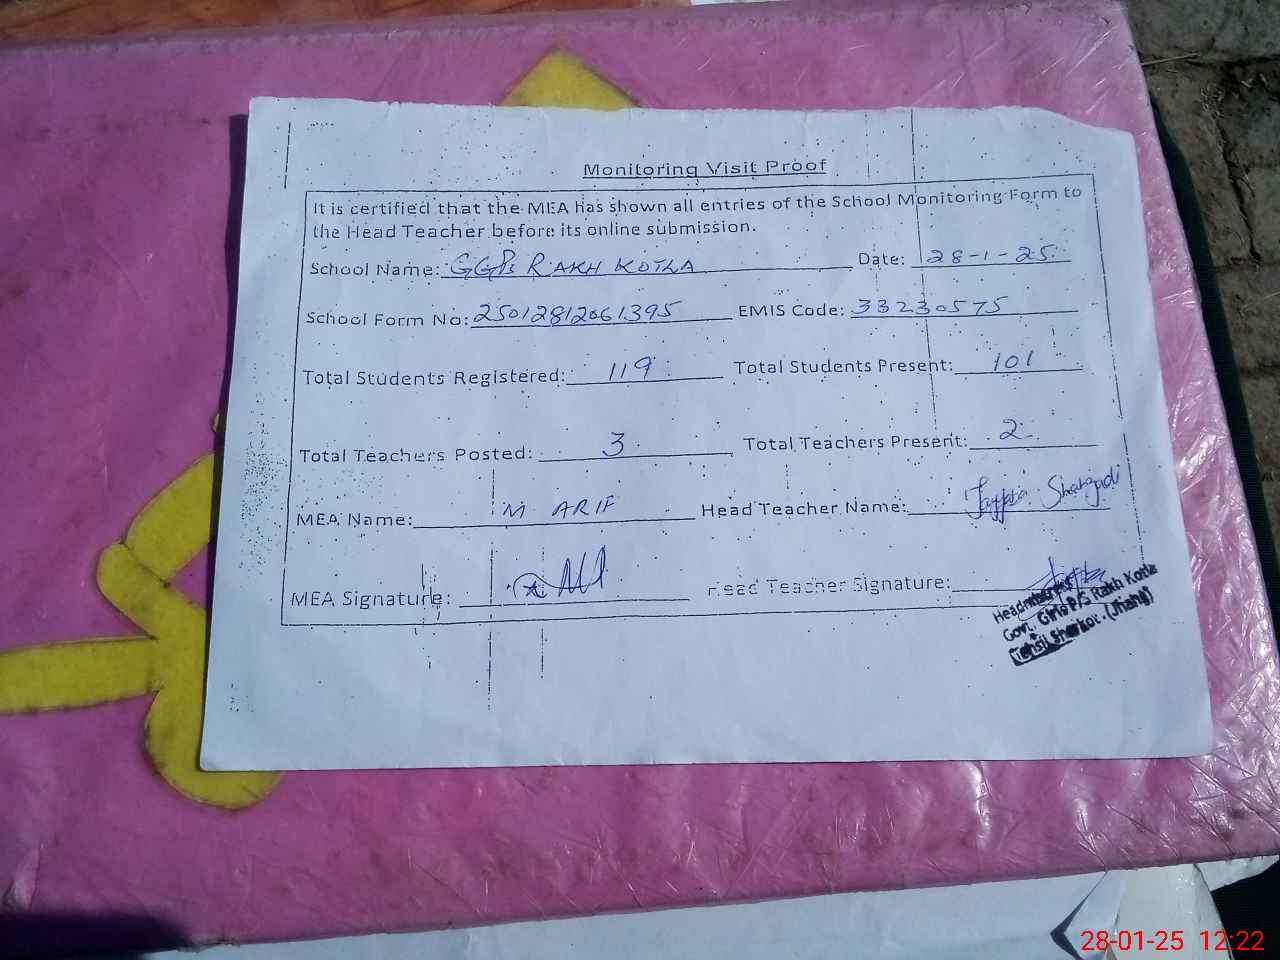 Monitoring Visit Proof
It is certified that the MEA has shown all entries of the School Monitoring Form to
the Head Teacher before its online submission.
School Name: GGPS RAKH KOTLA Date: 28-1-25
School Form No: 25012812061395 EMIS Code: 33230575
Total Students Registered: 119 Total Students Present: 101
Total Teachers Posted: 3 Total Teachers Present: 2
MEA Name: M ARIF Head Teacher Name: Shahzadi
MEA Signature: Head Teacher Signature:
Govt. Girls P/S Rakh Kotla
Tehsil Shorkot (Jhang)
28-01-25 12:22